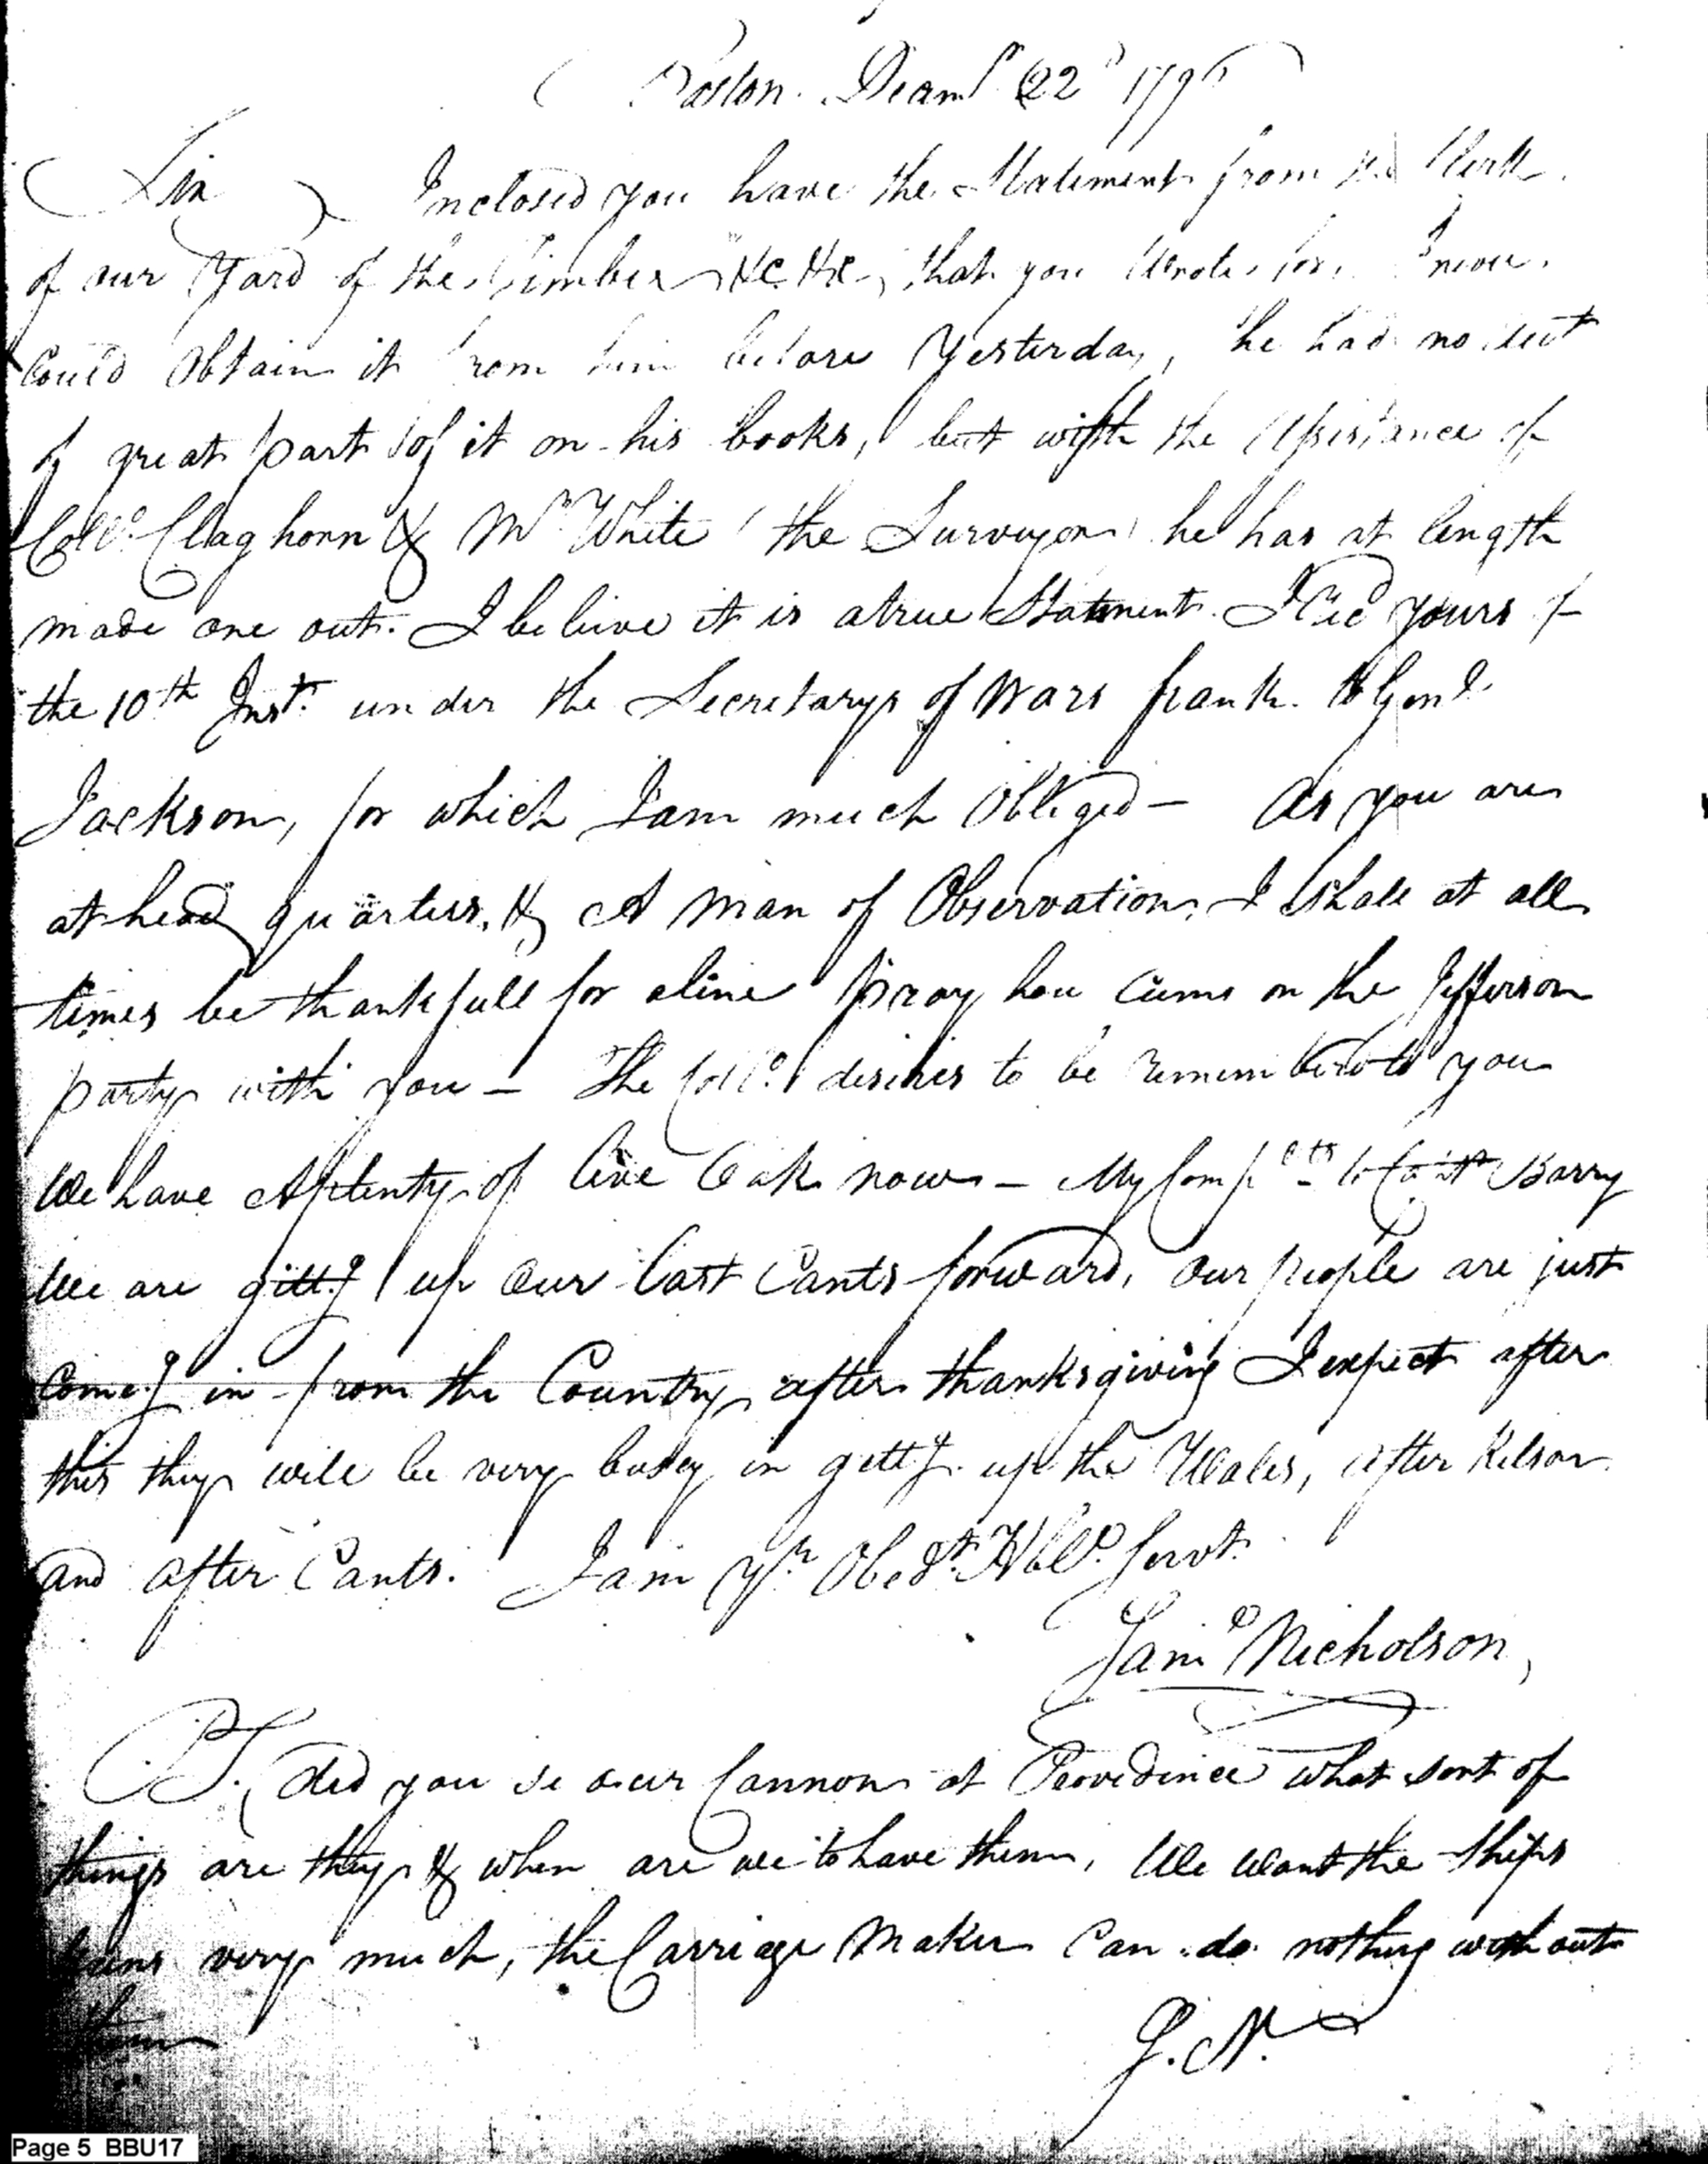 Boston Decemr 22d 1796
Sir Inclosed you have the Statement from the Clerk
of our Yard of the Timber &c &c, that you Wrote for. I never
Could Obtain it from him before Yesterday, he had no acct
of great part of it on his books, but with the Assistance of
Collo. Claghorn & Mr White the Surveyor he has at length
made one out. I beleive it is a true Statment. I Recd yours of
the 10th Inst. under the Secretarys of Wars frank to Genl
Jackson, for which I am much Obliged — As you are
at head quarters, & A Man of Observation, I shall at all
times be thankfull for a line Pray how Cums on the Jefferson
party with you — The Collo. desires to be rememberd to you
We have A plenty of live Oak now — My Compts to Capt Barry
We are gittg up Our last Cants forward, Our people are just
Comeg in from the Country after thanksgiving I expect after
this they will be very busey in gettg up the Wales, after Kelson
and after Cants. I am Yr Obedt Hble Servt.
Saml Nicholson,
PS. did you se our Cannon at Providence what sort of
things are they & when are we to have them, We Want the Ships
Guns very much, the Carriage Maker Can do nothing without
them
S. N.
Page 5 BBU17